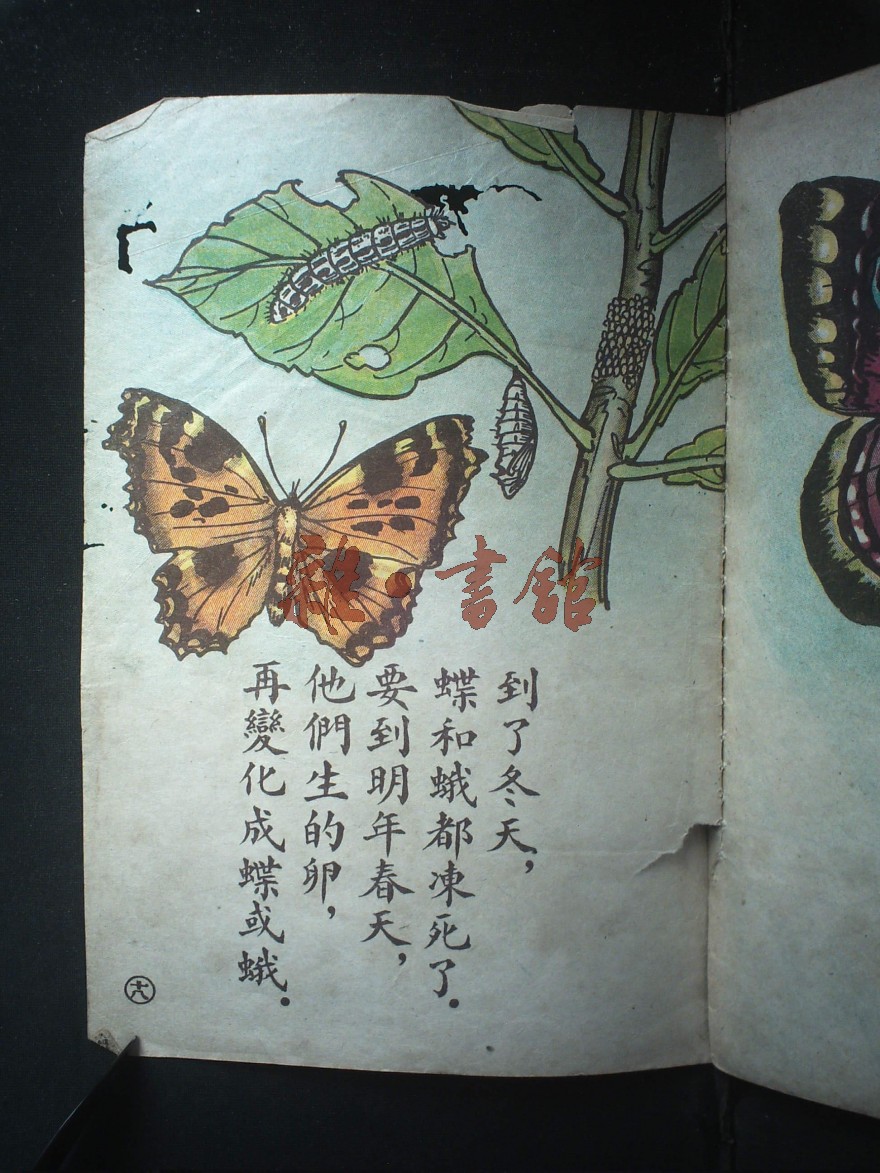 到了冬天，
蝶和蛾都凍死了．
要到明年春天，
他們生的卵，
再變化成蝶或蛾．
十八
雜·書館